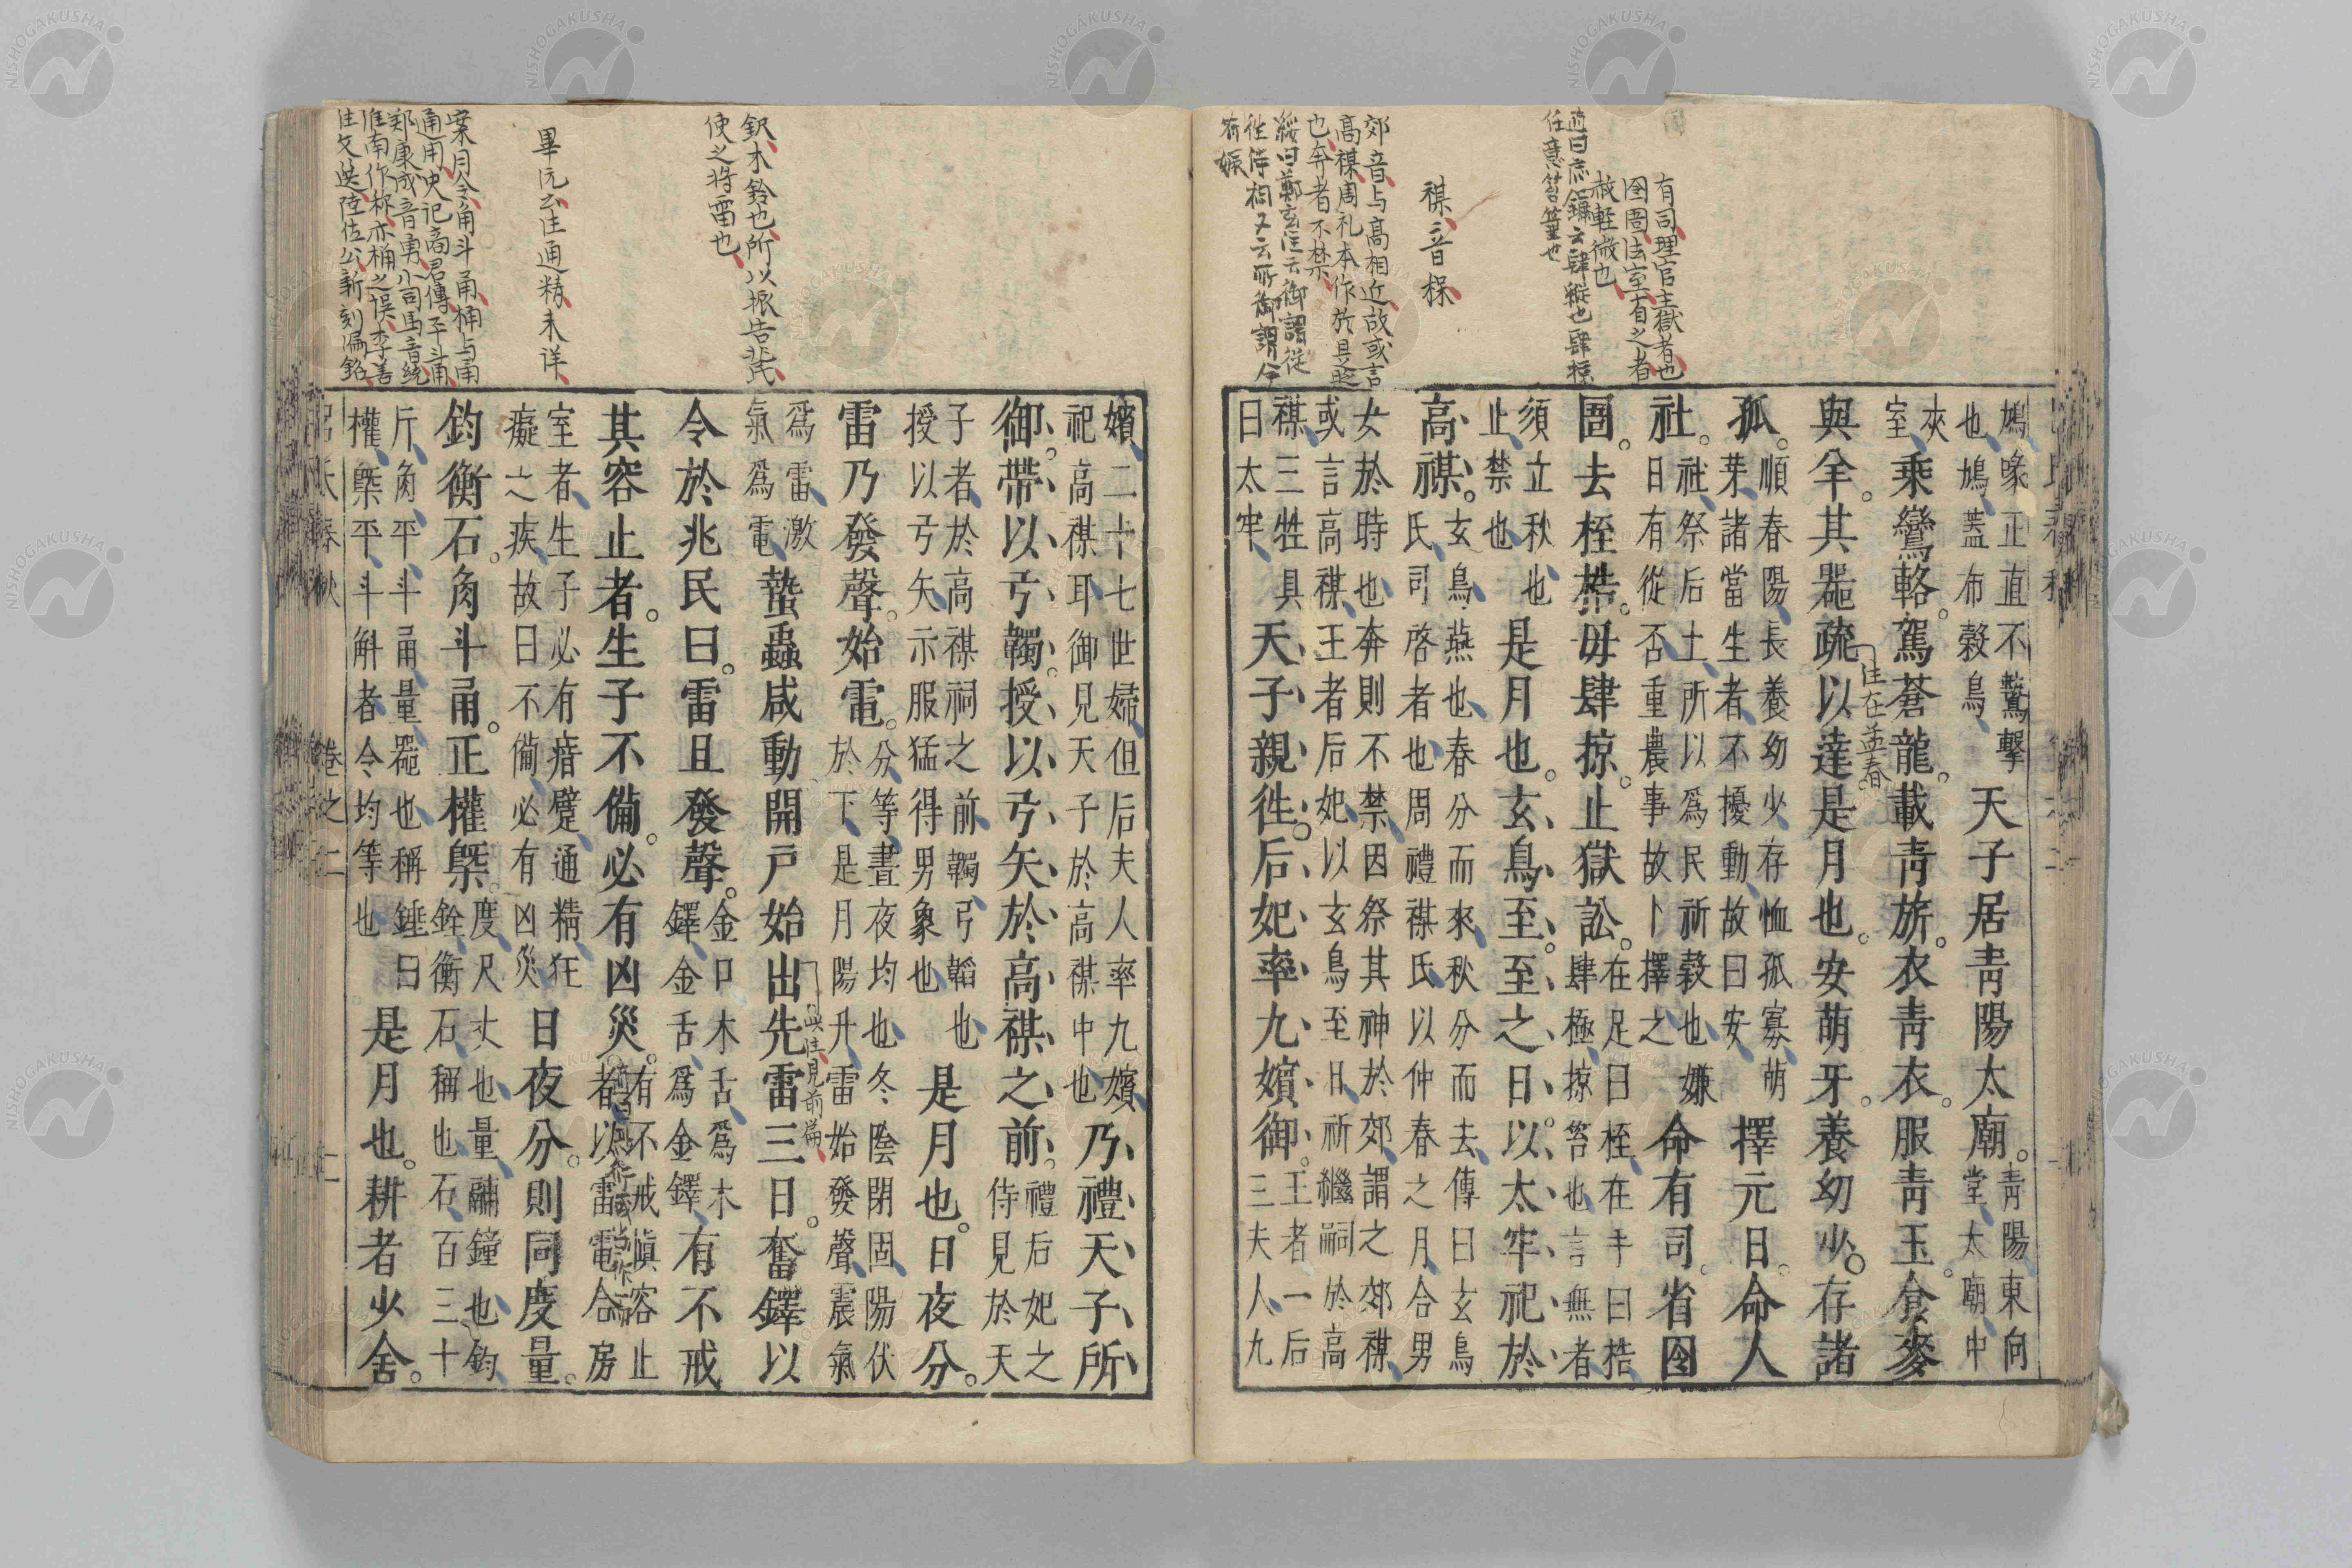 有司理官主獄者也
囹圄法室有之者
赦軽微也
任意笞箠也
禖音採
郊音与高相近故或言
高禖周礼本作於是時
也奔者不禁
綏曰鄭玄注云御謂從
徃侍祠又云所御謂今
有娠
鳩喙正直不鷙擊
也鳩蓋布穀鳥
天子居青陽太廟。
青陽東向
堂太廟中
夾
室
乘鸞輅。駕蒼龍。載青旂。衣青衣。服青玉。食麥
註在孟春
與羊。其器疏以達是月也。安萌牙。養幼少。存諸
孤。
順春陽長養幼少存恤孤寡萌
芽諸當生者不擾動故曰安
擇元日。命人
社。
社祭后土所以爲民祈穀也嫌
日有從否重農事故卜擇之
命有司。省囹
圄。去桎梏。毋肆掠。止獄訟。
在足曰桎在手曰梏
肆極掠笞也言無者
須立秋也
止禁也
是月也。玄鳥至。至之日。以太牢祀於
高禖。
玄鳥燕也春分而來秋分而去傳曰玄鳥
氏司啓者也周禮禖氏以仲春之月合男
女於時也奔則不禁因祭其神於郊謂之郊禖
或言高禖王者后妃以玄鳥至日祈繼嗣於高
禖三牲具
曰太牢
天子親徃。后妃率九嬪御。
王者一后
三夫人九
釈木鈴也所以振告兆民
使之將雷也
畢沅云注通精未詳
案月令角斗甬桶与甬
通用史記商君傳平斗甬
鄭康成音勇小司馬音統
淮南作称亦桶之誤李善
注文選陸佐公新刻漏銘
嬪二十七世婦但后夫人率九嬪
祀高禖耳御見天子於高禖中也
乃禮天子所
御。帶以弓韣。授以弓矢於高禖之前。
禮后妃之
侍見於天
子者於高禖祠之前韣弓韜也
授以弓矢示服猛得男象也
是月也。日夜分。
雷乃發聲。始電。
分等晝夜均也冬陰閉固陽伏
於下是月陽升雷始發聲震氣
爲雷激
氣爲電
蟄蟲咸動開戸始出先雷三日。奮鐸以
令於兆民曰。雷且發聲。
金口木舌爲木
鐸金舌爲金鐸
有不戒
其容止者。生子不備。必有凶災。
有不戒愼容止
者以雷電合房
室者生子必有瘖躄通精狂
癡之疾故曰不備必有凶災
日夜分。則同度量。
鈞衡石。角斗甬。正權槩。
度尺丈也量鬴鐘也鈞
銓衡石稱也石百三十
斤角平斗甬量器也稱錘曰
權槩平斗斛者令均等也
是月也。耕者少舍。
呂氏春秋 卷之二